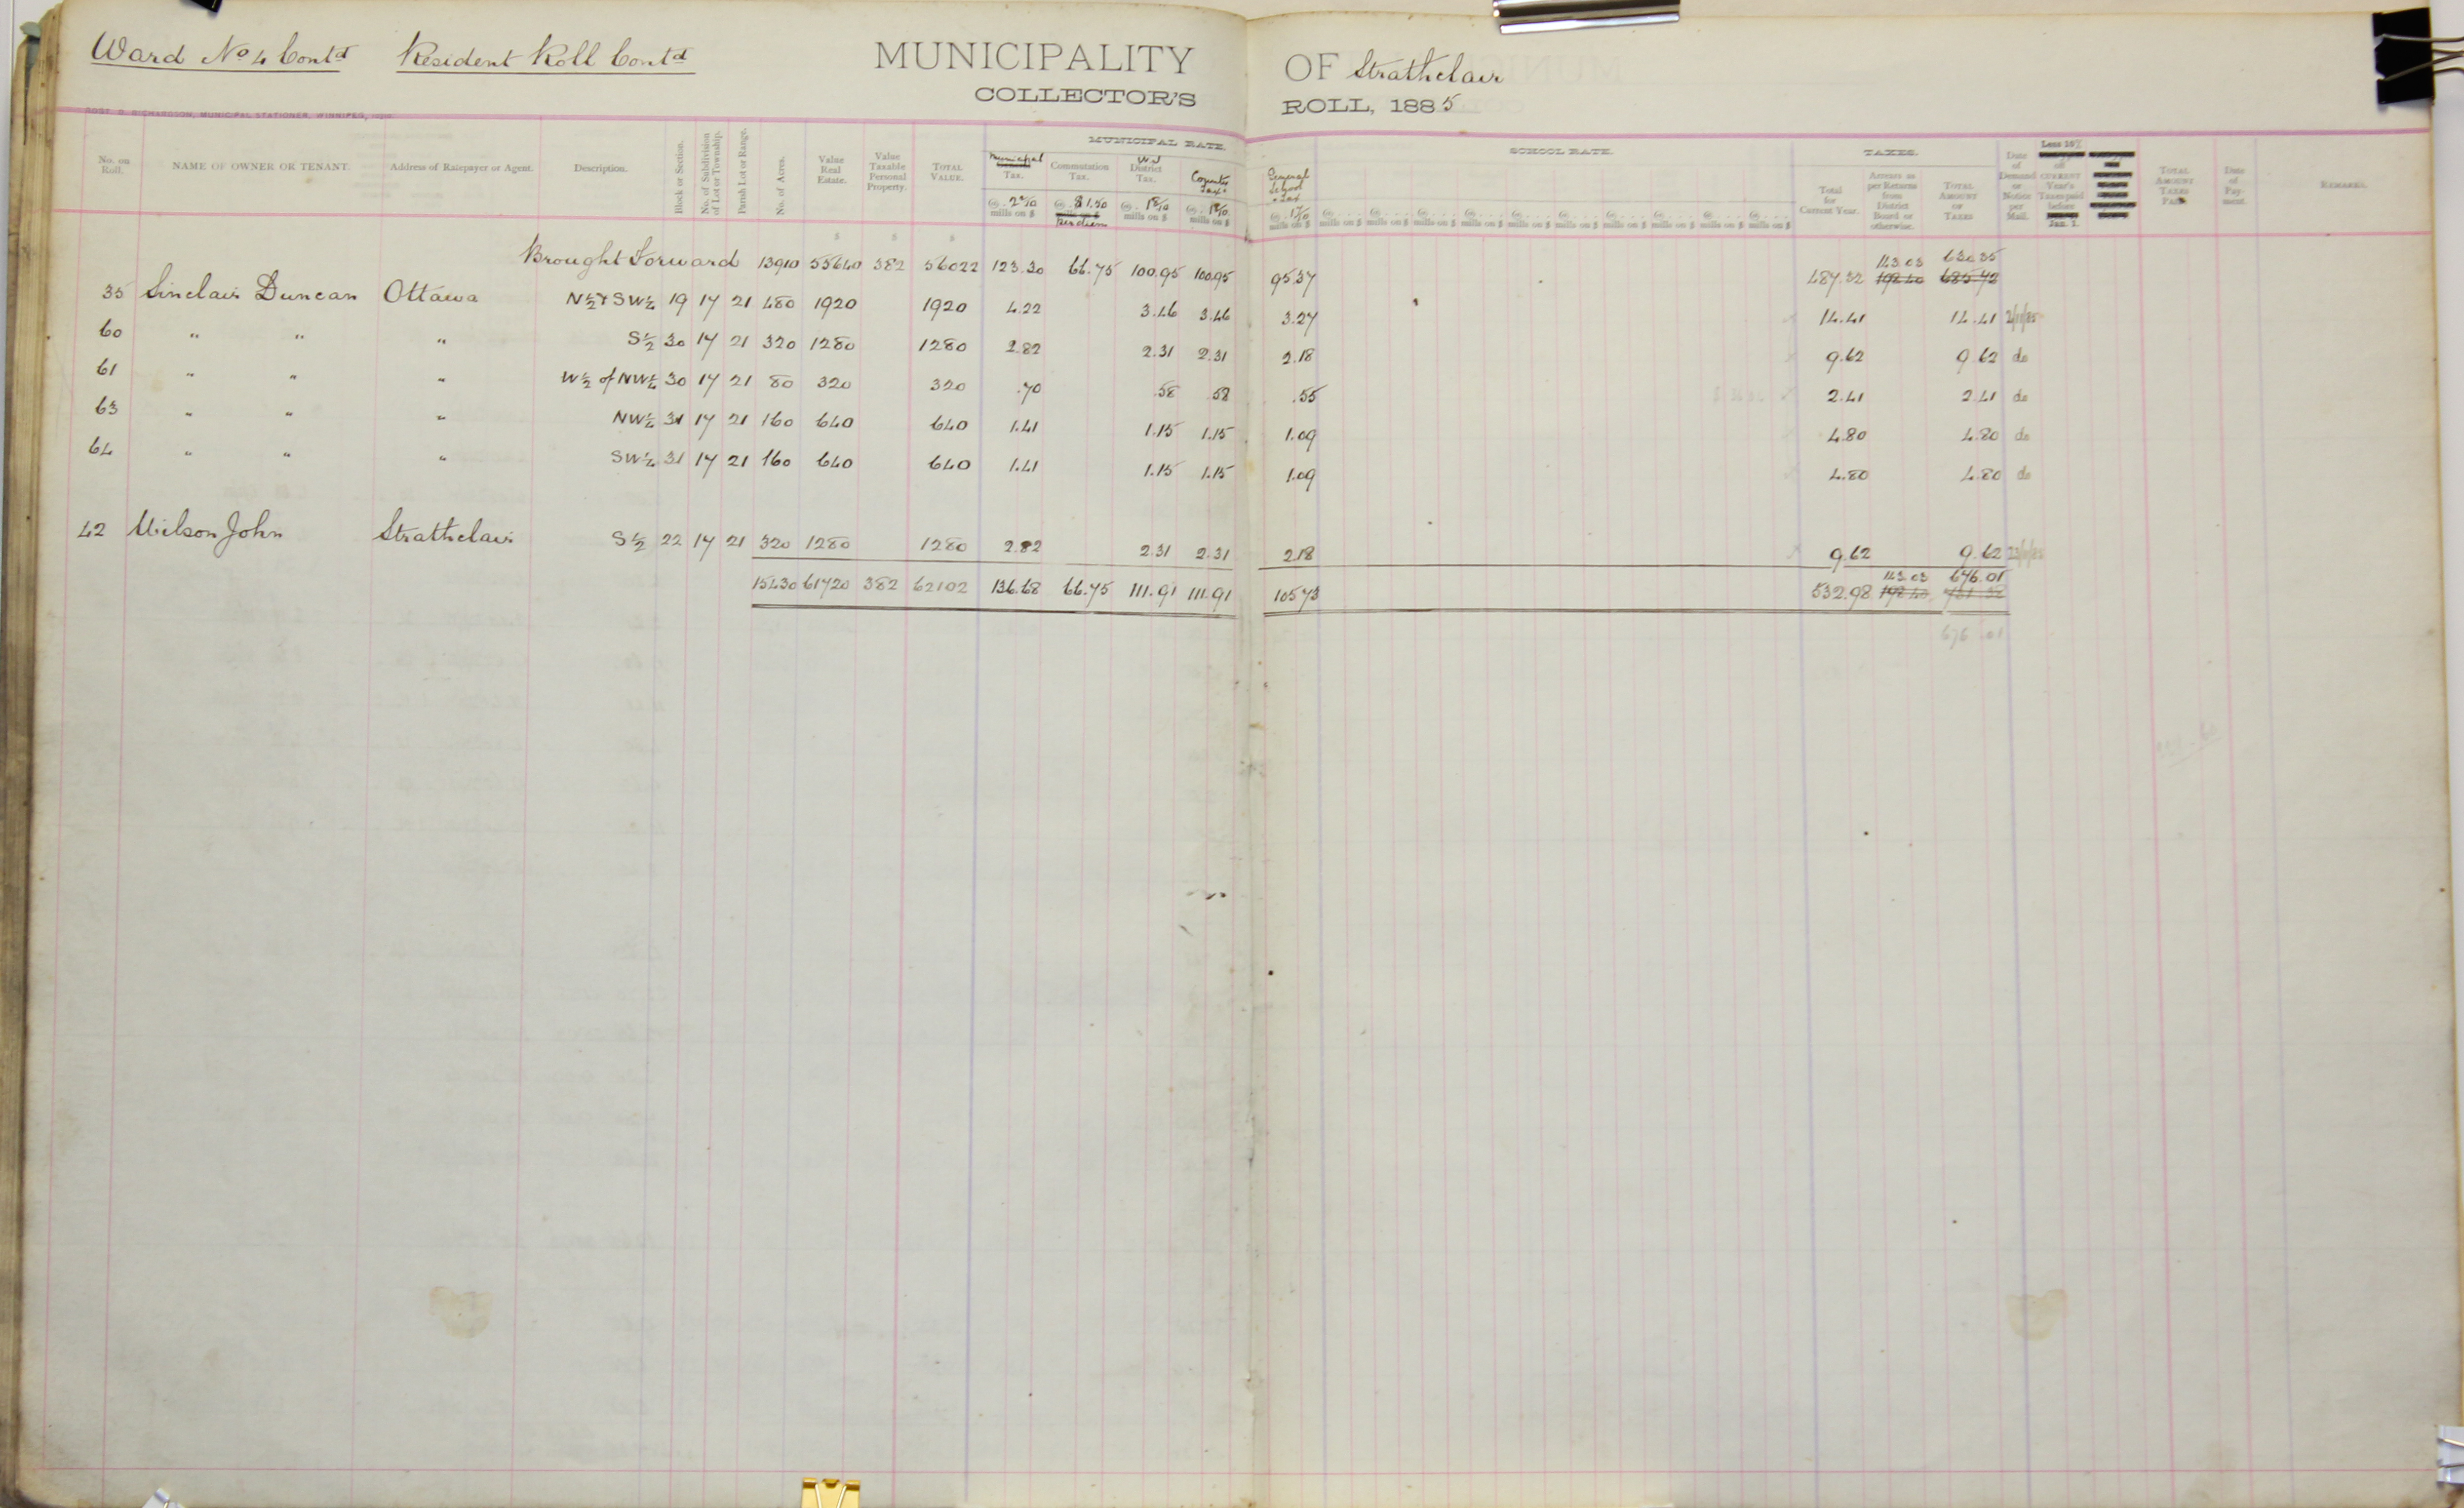 Ward No 4 Contd Resident Roll Contd MUNICIPALITY OF Strathclair
COLLECTOR'S ROLL, 1885
RICHARDSON, MUNICIPAL STATIONER, WINNIPEG,
MUNICIPAL RATE. SCHOOL RATE. TAXES.
No. on Roll. NAME OF OWNER OR TENANT. Address of Ratepayer or Agent. Description. Block or Section. No. of Subdivision of Lot or Township. Parish Lot or Range. No. of Acres. Value Real Estate. Value Taxable Personal Property. TOTAL VALUE. Municipal Tax. Commutation Tax. WJ District Tax. County Tax. General School Tax Total for Current Year. Arrears as per Returns from District Board or otherwise. TOTAL AMOUNT OF TAXES Date of Demand or Notice per Mail. Less 10% off CURRENT Year's Taxes paid before Jan. 1. TOTAL AMOUNT TAXES PAID Date of Payment. REMARKS.
@ 2 2/10 mills on $ @ $1.50 Per diem @ 1 8/10 mills on $ @ 1 8/10 mills on $ @ 1 7/10 mills on $ mills on $ mills on $ mills on $ mills on $ mills on $ mills on $ mills on $ mills on $ mills on $ mills on $
$ $ $
143.03 630.35
Brought Forward 13910 55640 382 56022 123.30 66.75 100.95 100.95 95.37 487.32 198.40 685.72
35 Sinclair Duncan Ottawa N½ & SW¼ 19 17 21 480 1920 1920 4.22 3.46 3.46 3.27 14.41 14.41 2/11/85
60 " " " S½ 30 17 21 320 1280 1280 2.82 2.31 2.31 2.18 9.62 9.62 do
61 " " " W½ of NW¼ 30 17 21 80 320 320 .70 .58 .58 .55 2.41 2.41 do
63 " " " NW¼ 31 17 21 160 640 640 1.41 1.15 1.15 1.09 4.80 4.80 do
64 " " " SW¼ 31 17 21 160 640 640 1.41 1.15 1.15 1.09 4.80 4.80 do
42 Wilson John Strathclair S½ 22 17 21 320 1280 1280 2.82 2.31 2.31 2.18 9.62 9.62
143.03 676.01
15430 61720 382 62102 136.68 66.75 111.91 111.91 105.73 532.98 198.40 731.38
676.01